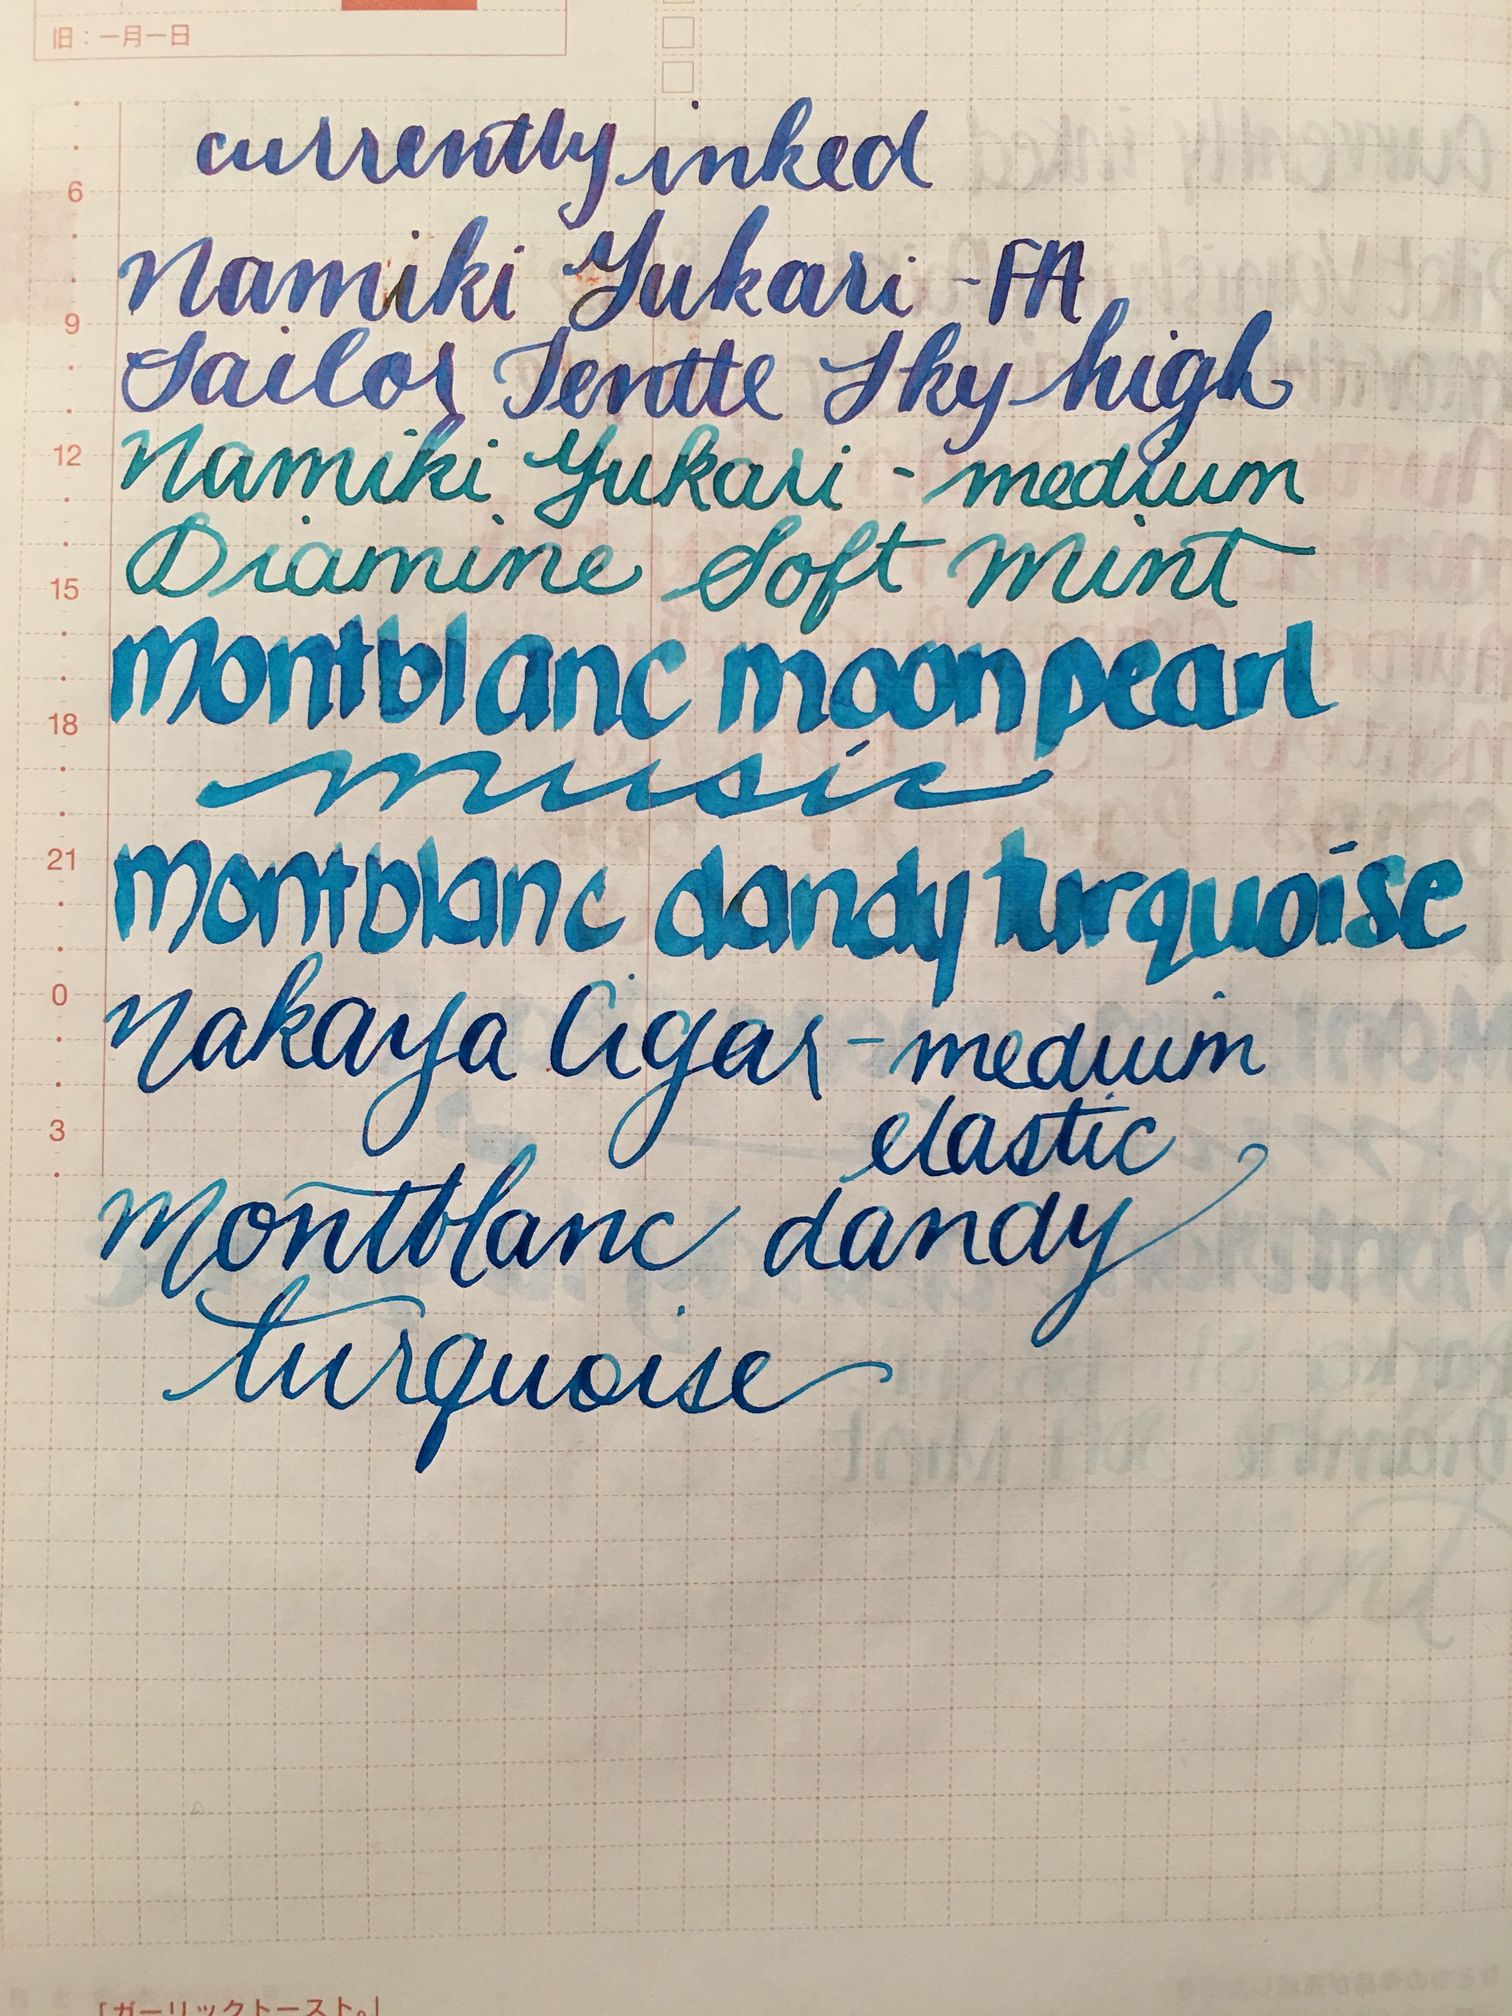 旧：一月一日
currently inked
6
Namiki Yukari - FA
9
Sailor Tentte Sky high
12
Namiki Yukari - medium
Diamine Soft Mint
15
montblanc moonpearl
18
music
montblanc dandy turquoise
21
0
Nakaya Cigar - medium
elastic
3
Montblanc dandy
turquoise
「ガーリックトースト。」